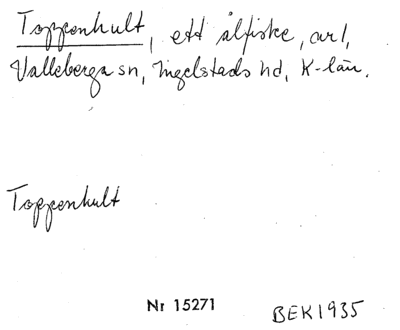 Toppenhult, ett ålfiske, arl,
Valleberga sn, Ingelstads hd, K-län.
Toppenhult
Nr 15271
BEK 1935